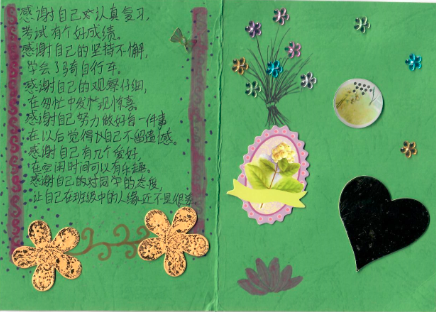 感谢自己认真复习，
考试有个好成绩。
感谢自己的坚持不懈，
学会了骑自行车。
感谢自己的观察仔细，
在匆忙中发现惊喜。
感谢自己努力做好每一件事
在以后觉得让自己不留遗憾。
感谢自己有几个爱好，
在空闲时间可以有乐趣。
感谢自己的对同学的态度，
让自己在班级中的人缘还不是很差